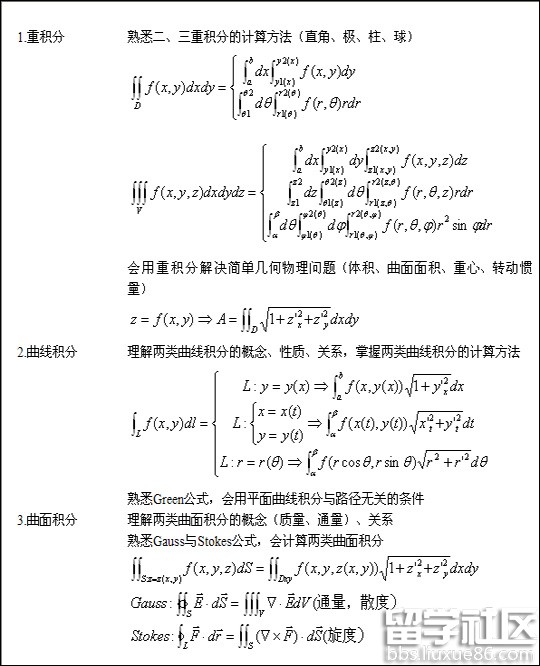 1.重积分 熟悉二、三重积分的计算方法（直角、极、柱、球）
∬_D f(x,y)dxdy = { ∫_a^b dx ∫_{y1(x)}^{y2(x)} f(x,y)dy
∫_{θ1}^{θ2} dθ ∫_{r1(θ)}^{r2(θ)} f(r,θ)rdr
∭_V f(x,y,z)dxdydz = { ∫_a^b dx ∫_{y1(x)}^{y2(x)} dy ∫_{z1(x,y)}^{z2(x,y)} f(x,y,z)dz
∫_{z1}^{z2} dz ∫_{θ1(z)}^{θ2(z)} dθ ∫_{r1(z,θ)}^{r2(z,θ)} f(r,θ,z)rdr
∫_α^β dθ ∫_{φ1(θ)}^{φ2(θ)} dφ ∫_{r1(θ,φ)}^{r2(θ,φ)} f(r,θ,φ)r² sin φdr
会用重积分解决简单几何物理问题（体积、曲面面积、重心、转动惯
量）
z = f(x,y) ⇒ A = ∬_D √(1+z'_x²+z'_y²) dxdy
2.曲线积分 理解两类曲线积分的概念、性质、关系，掌握两类曲线积分的计算方法
∫_L f(x,y)dl = { L: y = y(x) ⇒ ∫_a^b f(x,y(x))√(1+y'_x²) dx
L: { x = x(t) y = y(t) ⇒ ∫_α^β f(x(t),y(t))√(x'_t²+y'_t²) dt
L: r = r(θ) ⇒ ∫_α^β f(r cosθ,r sinθ)√(r²+r'²) dθ
熟悉Green公式，会用平面曲线积分与路径无关的条件
3.曲面积分 理解两类曲面积分的概念（质量、通量）、关系
熟悉Gauss与Stokes公式，会计算两类曲面积分
∬_{S:z=z(x,y)} f(x,y,z)dS = ∬_{Dxy} f(x,y,z(x,y))√(1+z'_x²+z'_y²) dxdy
Gauss: ∯_S E⃗·dS⃗ = ∭_V ∇·E⃗dV(通量，散度)
Stokes: ∮_L F⃗·dr⃗ = ∬_S (∇×F⃗)·dS⃗(旋度)
留学社区
bbs.liuxue86.com